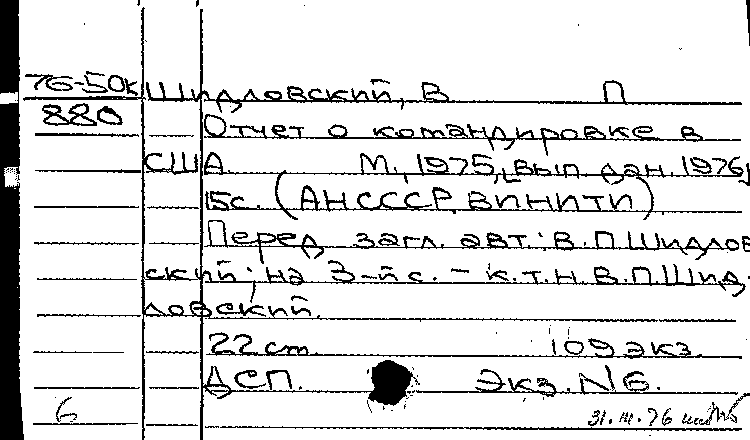 76-50к Шидловский, В П
880 Отчет о командировке в
США. М., 1975, [вып дан. 1976]
15с. (АН СССР. ВИНИТИ)
Перед загл. авт.: В.П.Шидлов
ский; на 3-й с. – к.т.н. В.П.Шид-
ловский.
22 см. 109 экз.
ДСП. Экз. №6.
6 31.III.76